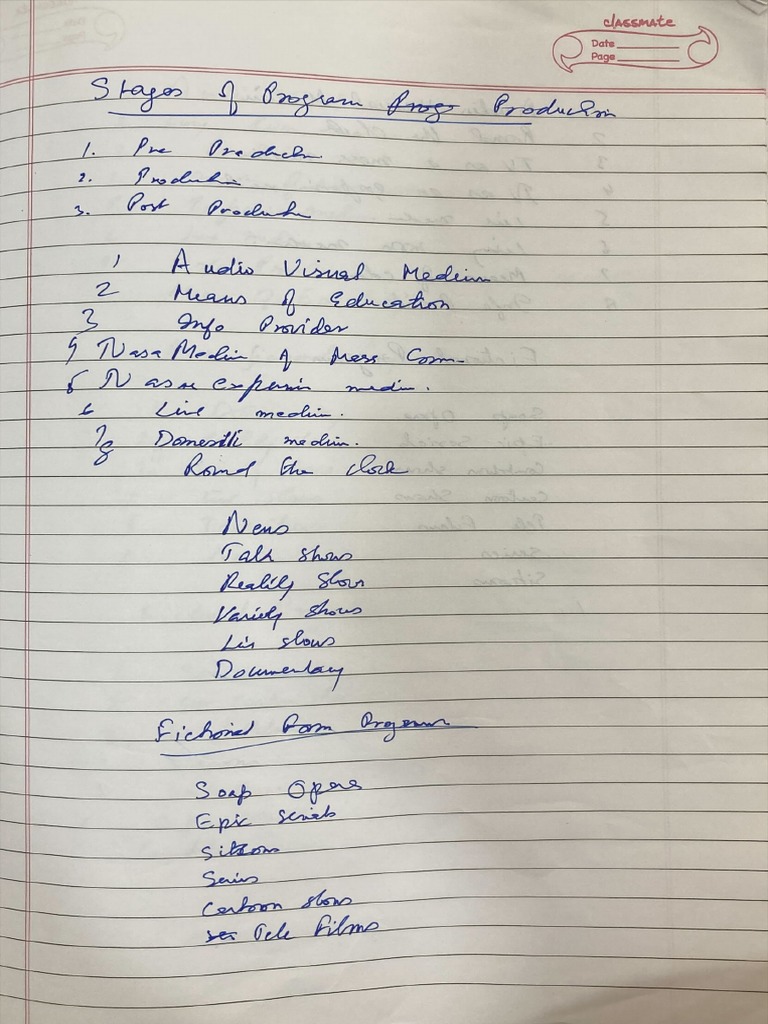 classmate
Date
Page
Stages of Program Progr Production
1. Pre Production
2. Production
3. Post Production
1 Audio Visual Medium
2 Means of Education
3 Info Provider
4 TV as a Medium of Mass Com.
5 TV as an expensive medium.
6 Live medium.
7 Domestic medium.
8 Round the clock
News
Talk shows
Reality Shows
Variety shows
Live shows
Documentary
Fictional Form Program
Soap Opera
Epic serials
Sitcom
Series
Cartoon shows
Tele Films